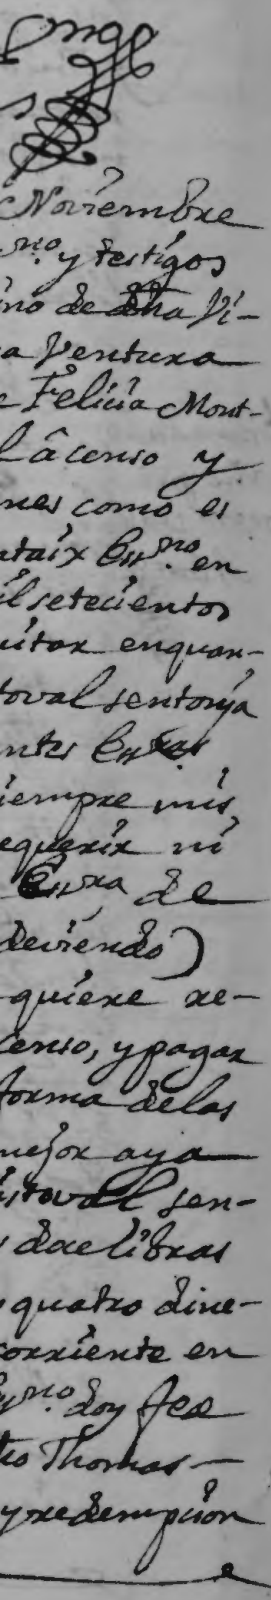 Noviembre
no. y testigos
ino de dha Vi-
a Ventura
e Felicia Mont-
l â censo y
nes como es
ataix Essno. en
il setecientos
uitar enquan-
toval sentonja
ntes Essras
iempre mis,
equerir ni
Essra de
deviendo)
quiere re-
censo, y pagar
forma delas
mejor aya
istoval sen-
s doze libras
quatro dine-
corriente en
no. doy fee
tio Thomas
y redempcion